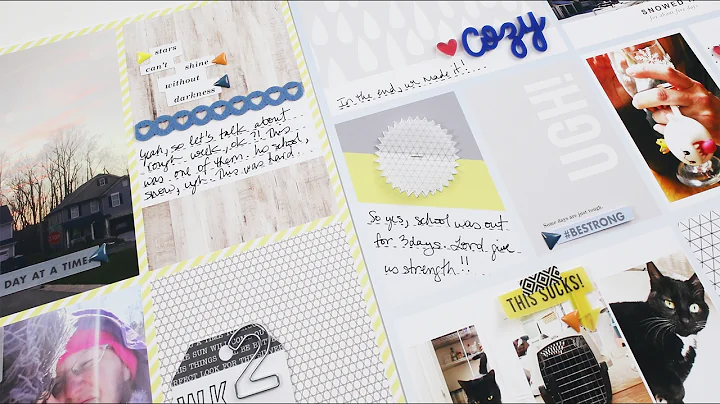 stars
can't
shine
without
darkness
Yeah, so let's talk about
rough week, ok?! This
was one of them. No school,
snow, ugh. This was hard.
DAY AT A TIME
THE SUN WITH JOY
THIS THINGS BE BUT
PERFECT LOOK FOR THE
WK 2
cozy
SNOWED
for about five days
In the end, we made it!
UGH!
So yes, school was out
for 3 days. Lord give
us strength!!
Some days are just tough.
#BESTRONG
THIS SUCKS!